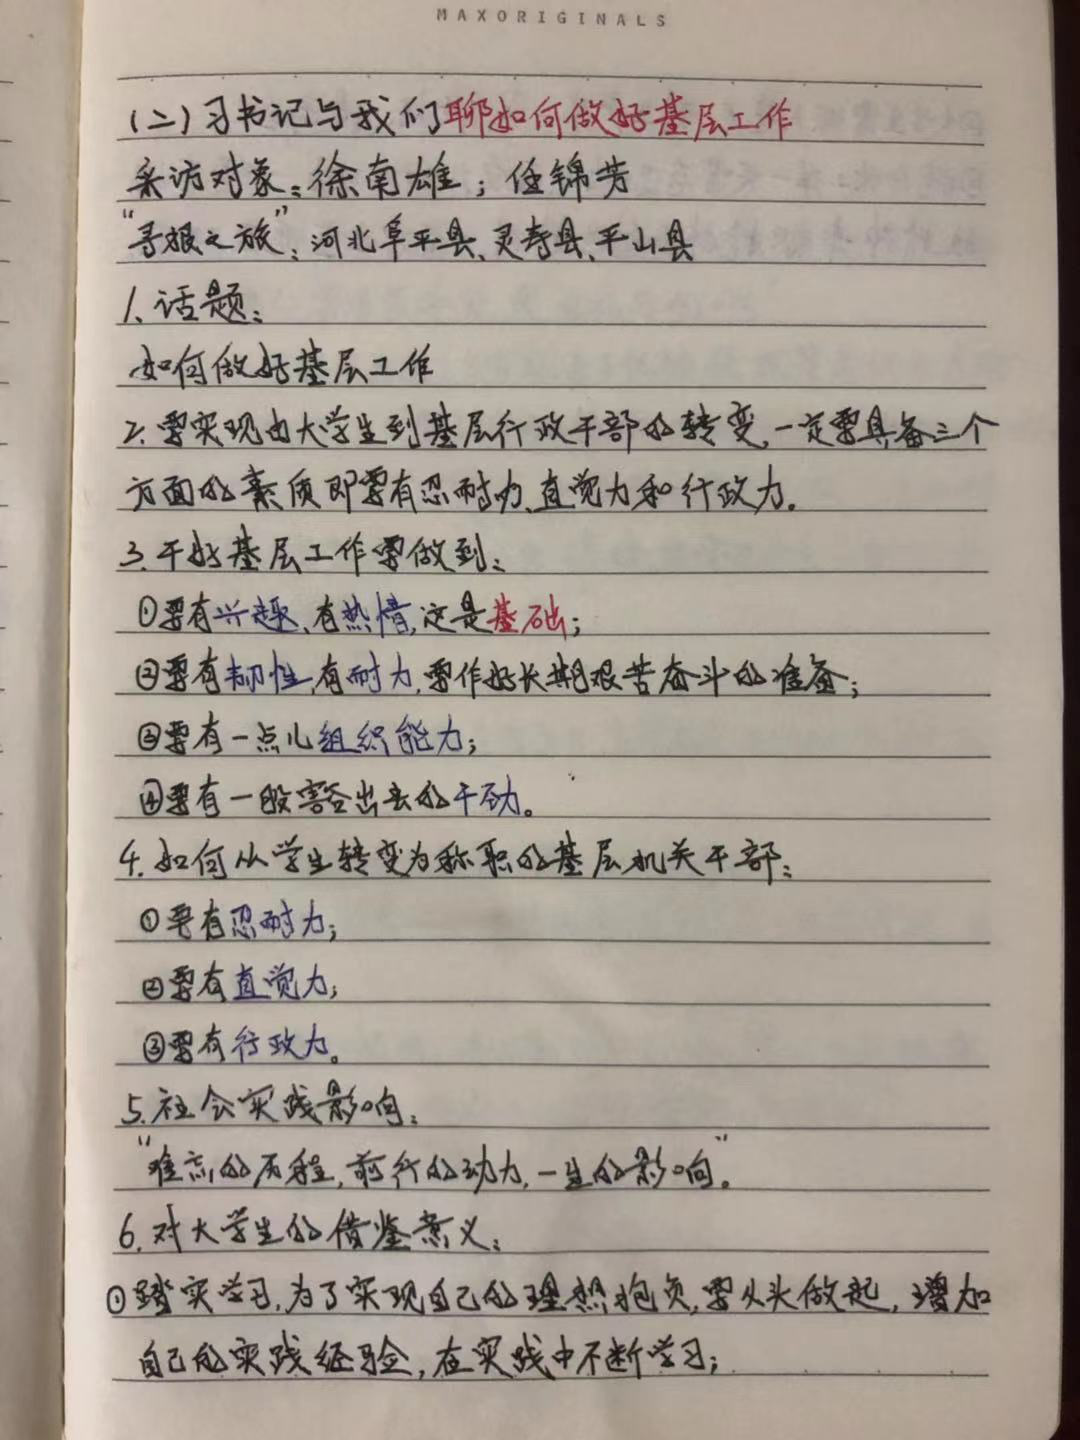 MAXORIGINALS
(二)习书记与我们聊如何做好基层工作
采访对象:徐南雄;任锦芳
"寻根之旅":河北阜平县、灵寿县、平山县
1.话题:
如何做好基层工作
2.要实现由大学生到基层行政干部的转变,一定要具备三个
方面的素质即要有忍耐力、直觉力和行政力。
3.干好基层工作需做到:
①要有兴趣、有热情,这是基础;
②要有韧性,有耐力,要作好长期艰苦奋斗的准备;
③要有一点儿组织能力;
④要有一股豁出去的干劲。
4.如何从学生转变为称职的基层机关干部:
①要有忍耐力;
②要有直觉力;
③要有行政力。
5.社会实践影响:
"难忘的历程,前行的动力,一生的影响"。
6.对大学生的借鉴意义:
①踏实学习,为了实现自己的理想抱负,要从头做起,增加
自己的实践经验,在实践中不断学习;